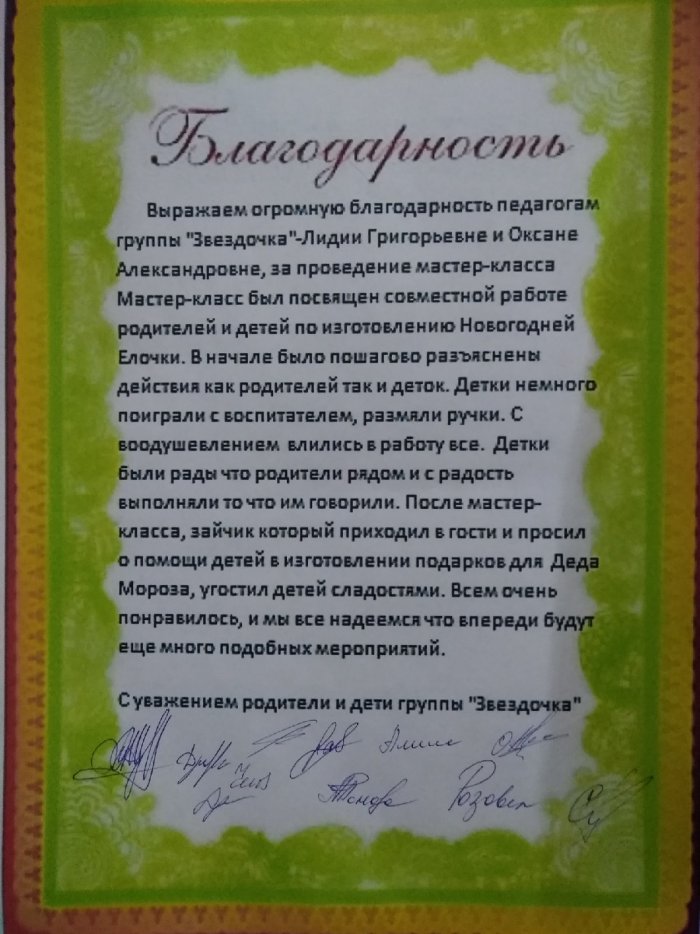 Благодарность
Выражаем огромную благодарность педагогам
группы "Звездочка"-Лидии Григорьевне и Оксане
Александровне, за проведение мастер-класса
Мастер-класс был посвящен совместной работе
родителей и детей по изготовлению Новогодней
Елочки. В начале было пошагово разъяснены
действия как родителей так и деток. Детки немного
поиграли с воспитателем, размяли ручки. С
воодушевлением влились в работу все. Детки
были рады что родители рядом и с радость
выполняли то что им говорили. После мастер-
класса, зайчик который приходил в гости и просил
о помощи детей в изготовлении подарков для Деда
Мороза, угостил детей сладостями. Всем очень
понравилось, и мы все надеемся что впереди будут
еще много подобных мероприятий.
С уважением родители и дети группы "Звездочка"